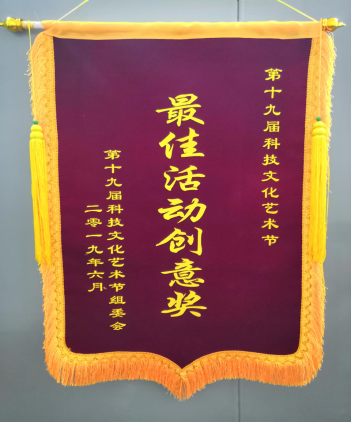 第十九届科技文化艺术节
最佳活动创意奖
第十九届科技文化艺术节组委会
二零一九年六月